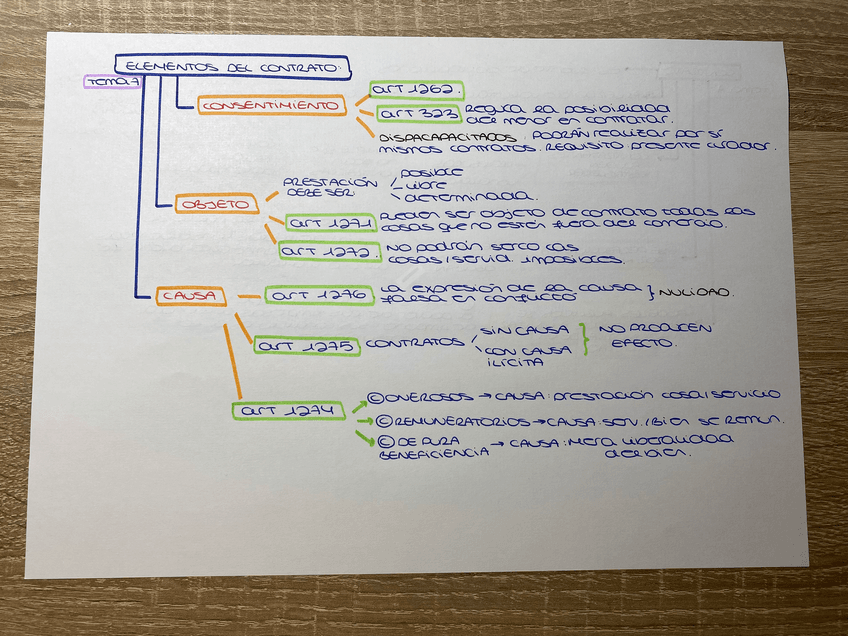 ELEMENTOS DEL CONTRATO:
TEMA 7
CONSENTIMIENTO
art 1262.
art 323
REGULA la posibilidad
del menor en contratar.
DISPACAPACITADOS. PODRÁN realizar por sí
mismos contratos. REQUISITO: presente curador.
OBJETO
PRESTACIÓN
DEBE SER:
posible
libre
determinada.
art 1271
pueden ser objeto de contrato todas las
cosas que no estén fuera del comercio.
art 1272.
NO podrán serlo las
cosas/servia imposibles.
CAUSA
art 1276
La expresión de la causa
falsa en conflicto
} NULIDAD.
art 1275
CONTRATOS
SIN CAUSA
CON CAUSA
ILÍCITA
} NO PRODUCEN
EFECTO.
art 1274
© ONEROSOS → CAUSA: prestación cosa/servicio
© REMUNERATORIOS → CAUSA: serv./bien se remun.
© DE PURA
BENEFICIENCIA → CAUSA: Mera liberalidad
del bien.